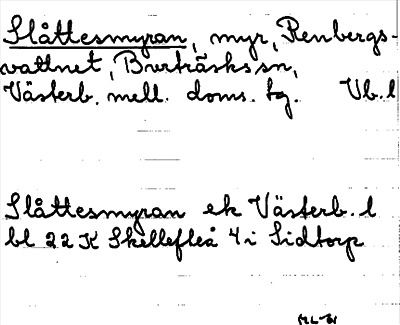 Slåttesmyran, myr, Renbergs-
vattnet, Burträsks sn,
Västerb. mell. doms. tg. Vb. l
Slåttesmyran ek Västerb. l
bl 22 K Skellefteå 4 i Sidtorp